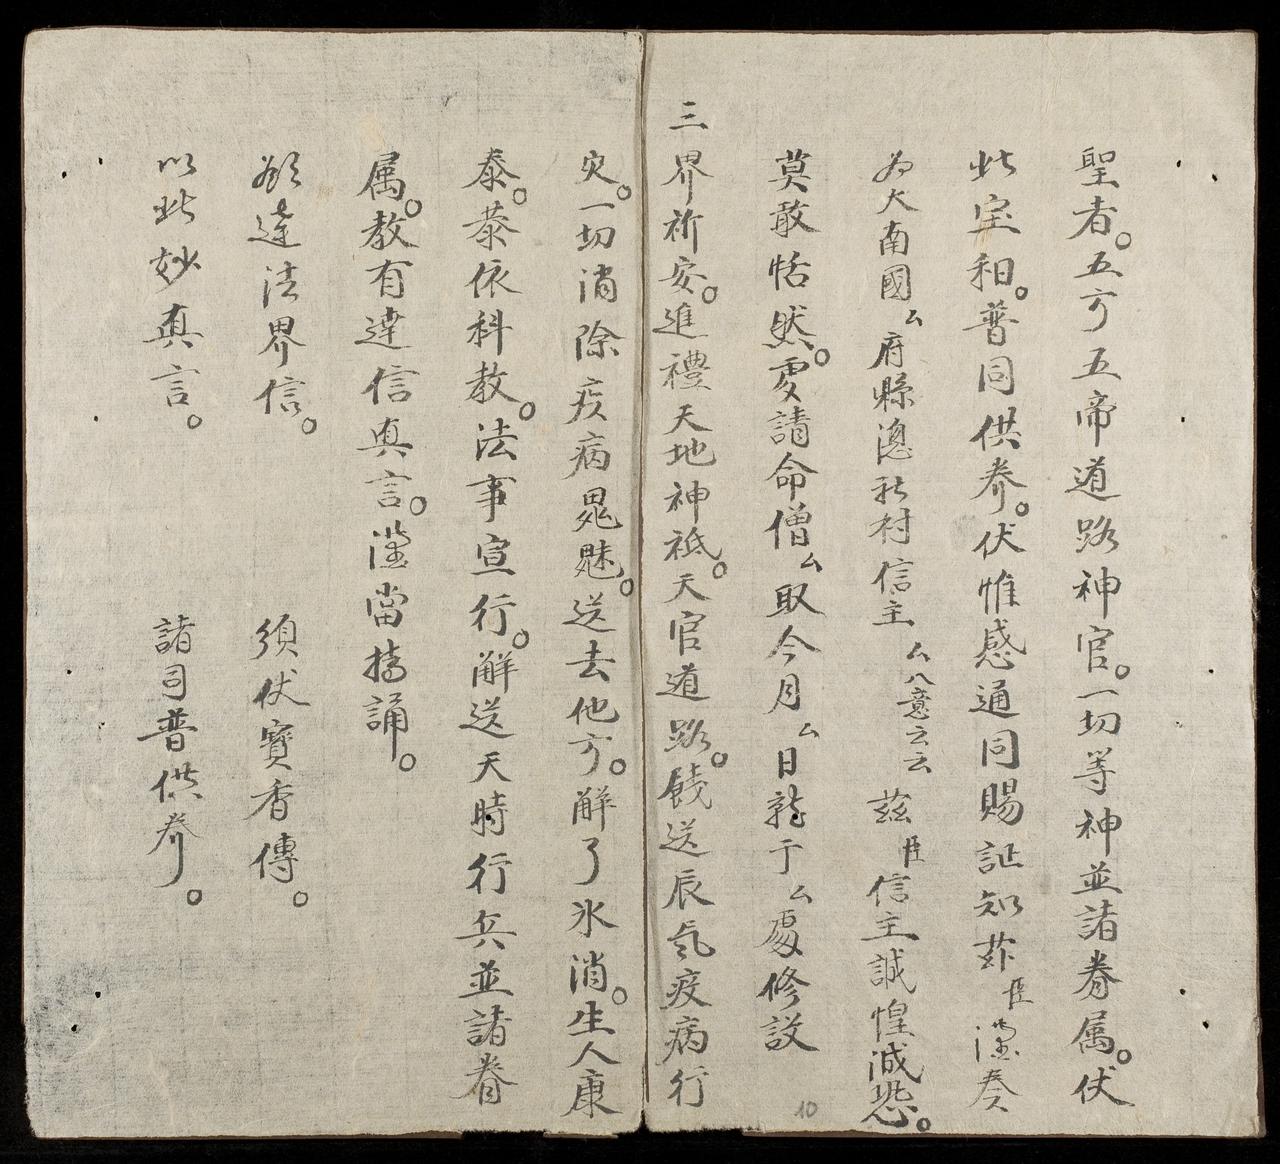 聖者。五方五帝道路神官。一切等神並諸眷属。伏
此宝相。普同供养。伏惟感通同賜証知茲臣謹奏
为大南國ム府縣總社村信主ム八意云云茲臣信主誠惶誠恐。
莫敢恬然。爰請命僧ム取今月ム日就于ム處修設
三界祈安。進禮天地神祇。天官道路。餞送辰気疫病行
灾。一切消除疾病鬼魅。送去他方。解了氷消。生人康
泰。恭依科教。法事宣行。解送天時行兵並諸眷
属。教有達信真言。謹當持誦。
欲達法界信。 須伏寶香傳。
以此妙真言。 諸司普供养。
10